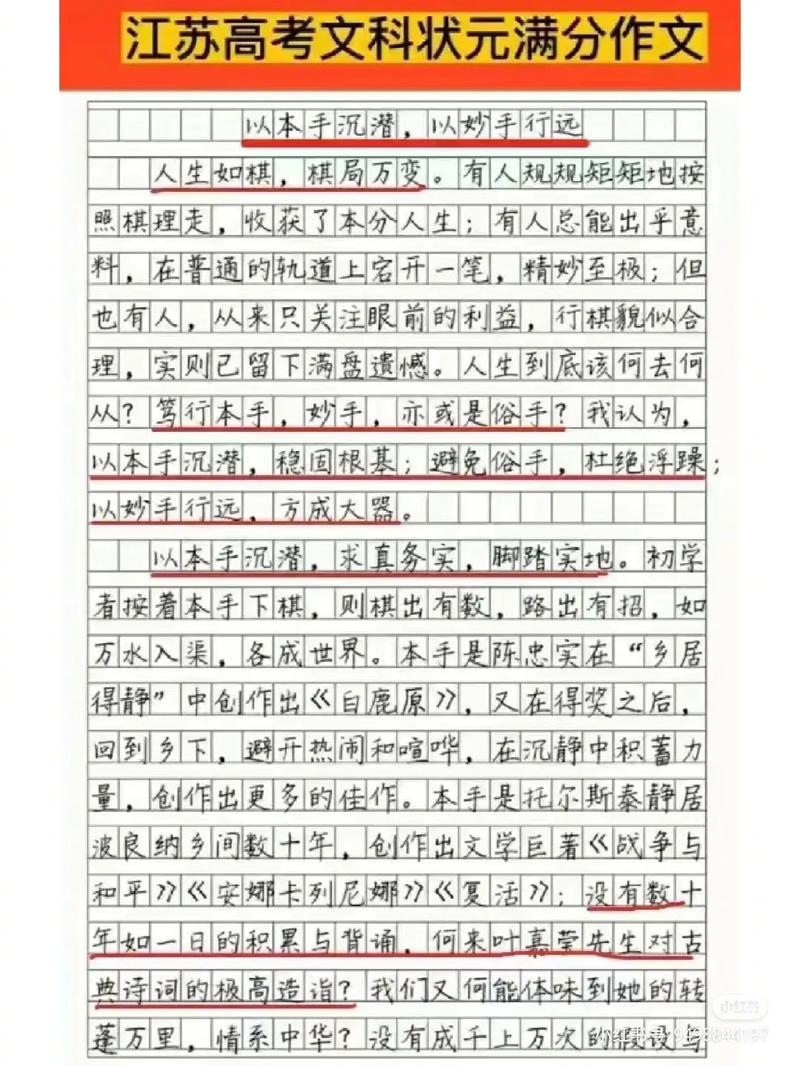 江苏高考文科状元满分作文
以本手沉潜，以妙手行远
人生如棋，棋局万变。有人规规矩矩地按
照棋理走，收获了本分人生；有人总能出乎意
料，在普通的轨道上宕开一笔，精妙至极；但
也有人，从来只关注眼前的利益，行棋貌似合
理，实则已留下满盘遗憾。人生到底该何去何
从？笃行本手，妙手，亦或是俗手？我认为，
以本手沉潜，稳固根基；避免俗手，杜绝浮躁；
以妙手行远，方成大器。
以本手沉潜，求真务实，脚踏实地。初学
者按着本手下棋，则棋出有数，路出有招，如
万水入渠，各成世界。本手是陈忠实在“乡居
得静”中创作出《白鹿原》，又在得奖之后，
回到乡下，避开热闹和喧哗，在沉静中积蓄力
量，创作出更多的佳作。本手是托尔斯泰静居
波良纳乡间数十年，创作出文学巨著《战争与
和平》《安娜卡列尼娜》《复活》；没有数十
年如一日的积累与背诵，何来叶嘉莹先生对古
典诗词的极高造诣？我们又何能体味到她的转
蓬万里，情系中华？没有成千上万次的假设与
小红书
小红书号:9498844197